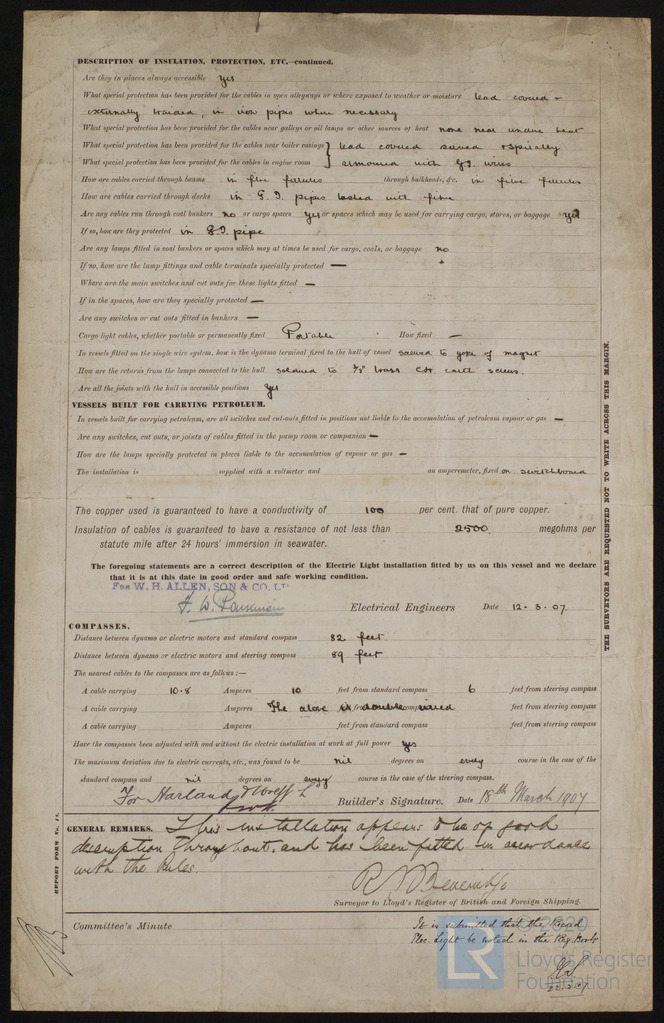 DESCRIPTION OF INSULATION, PROTECTION, ETC.—continued.
Are they in places always accessible yes
What special protection has been provided for the cables in open alleyways or where exposed to weather or moisture lead covered +
externally braided, in iron pipes when necessary
What special protection has been provided for the cables near galleys or oil lamps or other sources of heat none near undue heat
What special protection has been provided for the cables near boiler casings } lead covered served & spirally
What special protection has been provided for the cables in engine room armoured with G.I. wires
How are cables carried through beams in fibre ferrules through bulkheads, &c. in fibre ferrules
How are cables carried through decks in G.I. pipes bushed with fibre
Are any cables run through coal bunkers no or cargo spaces yes or spaces which may be used for carrying cargo, stores, or baggage yes
If so, how are they protected in G.I. pipe
Are any lamps fitted in coal bunkers or spaces which may at times be used for cargo, coals, or baggage no
If so, how are the lamp fittings and cable terminals specially protected —
Where are the main switches and cut outs for these lights fitted —
If in the spaces, how are they specially protected —
Are any switches or cut outs fitted in bunkers —
Cargo light cables, whether portable or permanently fixed Portable How fixed —
In vessels fitted on the single wire system, how is the dynamo terminal fixed to the hull of vessel screwed to yoke of magnet
How are the returns from the lamps connected to the hull soldered to brass earth screws.
Are all the joints with the hull in accessible positions Yes
VESSELS BUILT FOR CARRYING PETROLEUM.
In vessels built for carrying petroleum, are all switches and cut-outs fitted in positions not liable to the accumulation of petroleum vapour or gas —
Are any switches, cut outs, or joints of cables fitted in the pump room or companion —
How are the lamps specially protected in places liable to the accumulation of vapour or gas —
The installation is supplied with a voltmeter and an amperemeter, fixed on switchboard
The copper used is guaranteed to have a conductivity of 100 per cent. that of pure copper.
Insulation of cables is guaranteed to have a resistance of not less than 2500 megohms per
statute mile after 24 hours' immersion in seawater.
The foregoing statements are a correct description of the Electric Light installation fitted by us on this vessel and we declare
that it is at this date in good order and safe working condition.
FOR W. H. ALLEN, SON & CO. LD
F. W. Electrical Engineers Date 12.3.07
COMPASSES.
Distance between dynamo or electric motors and standard compass 82 feet
Distance between dynamo or electric motors and steering compass 89 feet
The nearest cables to the compasses are as follows:—
A cable carrying 10.8 Amperes 10 feet from standard compass 6 feet from steering compass
A cable carrying Amperes The above is double wired feet from standard compass feet from steering compass
A cable carrying Amperes feet from standard compass feet from steering compass
Have the compasses been adjusted with and without the electric installation at work at full power yes
The maximum deviation due to electric currents, etc., was found to be nil degrees on every course in the case of the
standard compass and nil degrees on every course in the case of the steering compass.
For Harland & Wolff Ld Builder's Signature. Date 18th March 1907
GENERAL REMARKS. This installation appears to be of good
description throughout, and has been fitted in accordance
with the Rules.
Surveyor to Lloyd's Register of British and Foreign Shipping.
Committee's Minute
It is submitted that the Record
Elec. Light be noted in the Reg. Book
THE SURVEYORS ARE REQUESTED NOT TO WRITE ACROSS THIS MARGIN.
REPORT FORM No. 11.
LR
© 2020
Lloyd's Register
Foundation